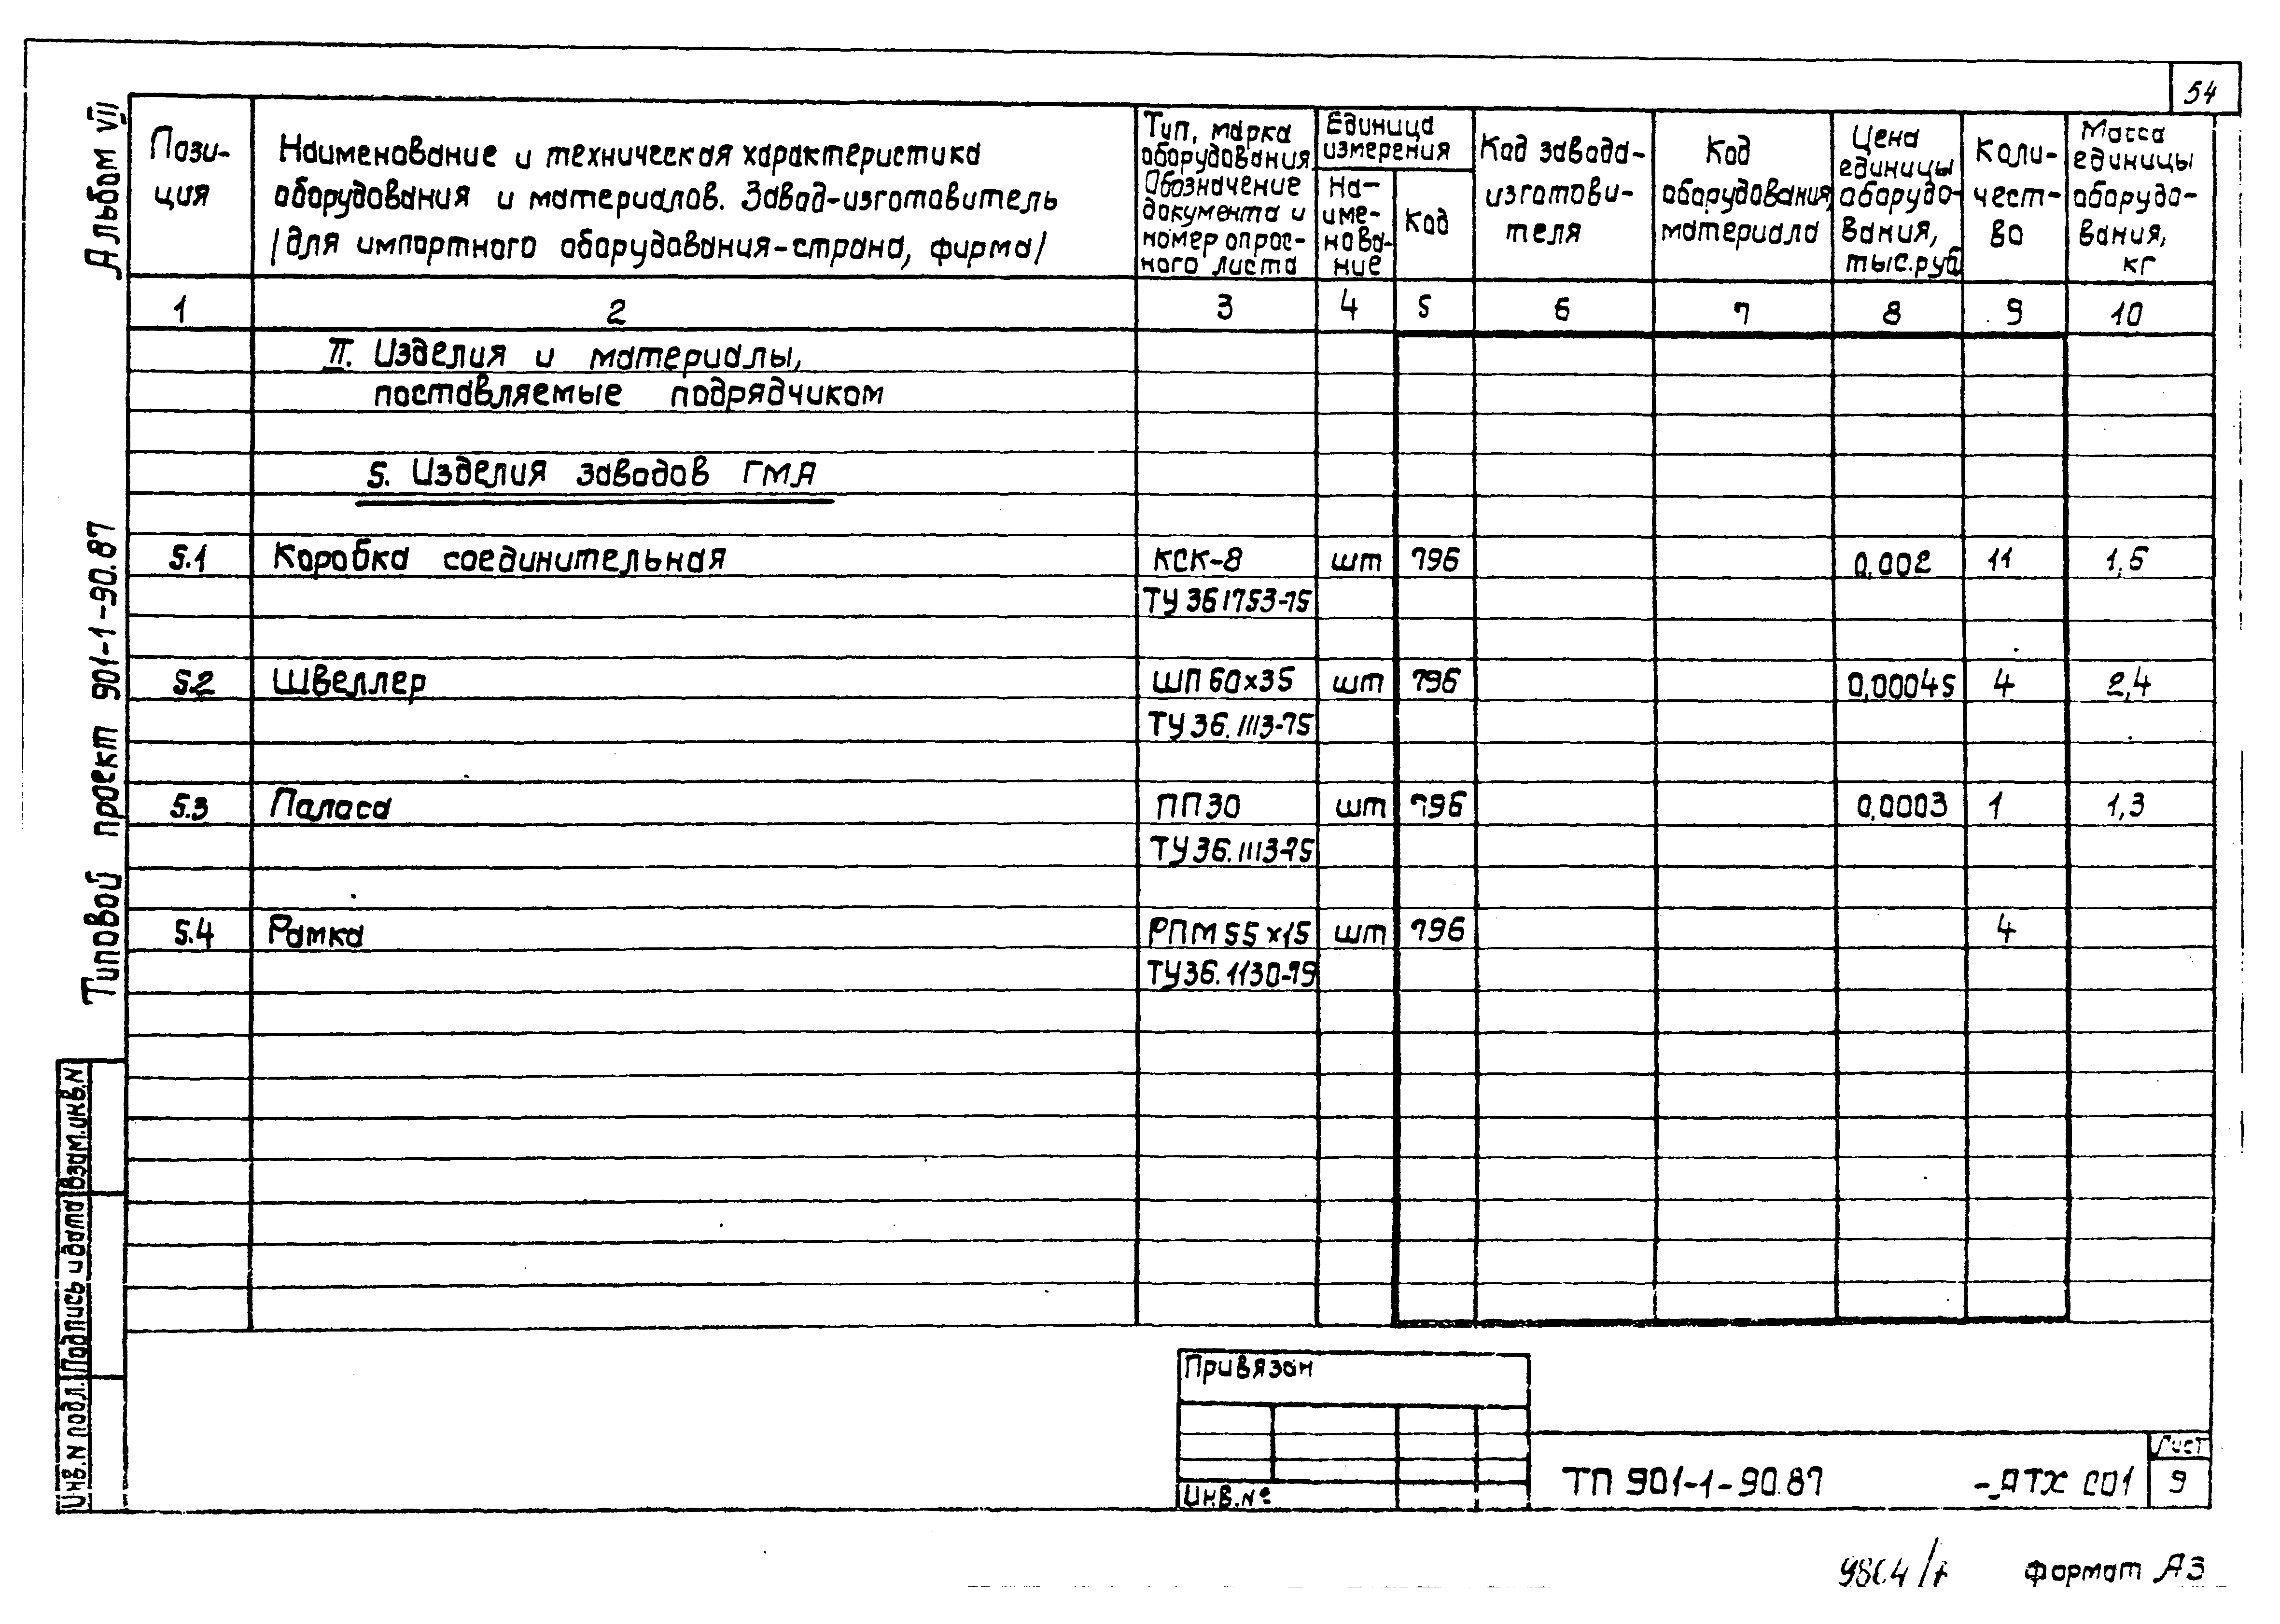 54
Альбом VII
Типовой проект 901-1-90.87
Взам.инв.N
Подпись и дата
Инв.N подл.
Пози-
ция
Наименование и техническая характеристика
оборудования и материалов. Завод-изготовитель
/для импортного оборудования-страна, фирма/
Тип, марка
оборудования.
Обозначение
документа и
номер опрос-
ного листа
Единица
измерения
На-
име-
нова-
ние
Код
Код завода-
изготови-
теля
Код
оборудования,
материала
Цена
единицы
оборудо-
вания,
тыс.руб
Коли-
чест-
во
Масса
единицы
оборудо-
вания,
кг
1 2 3 4 5 6 7 8 9 10
II. Изделия и материалы,
поставляемые подрядчиком
5. Изделия заводов ГМА
5.1 Коробка соединительная КСК-8 шт 796 0,002 11 1,5
ТУ 36 1753-75
5.2 Швеллер ШП 60х35 шт 796 0,00045 4 2,4
ТУ 36.1113-75
5.3 Полоса ПП30 шт 796 0,0003 1 1,3
ТУ 36.1113-75
5.4 Рамка РПМ 55х15 шт 796 4
ТУ36.1130-79
Привязан
Инв.№
ТП 901-1-90.87 -АТХ СО1
Лист
9
Формат А3